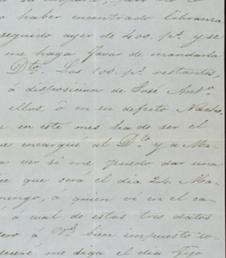 haber encontrado libranza
seguido ayer de 400 p.s y se
me haga favor de mandarla
Dto. Los 100 p.s restantes
á disposicion de José Anto
ellos ó en su defecto Nacho.
en este mes ha de ser el
encargue al Dto. y a
ver si me puedo dar una
que será el dia 24. Ma-
mingo, á quien ví en el ca-
á cual de estos tres datos
á Vd. bien impuesto
me diga el dia fijo